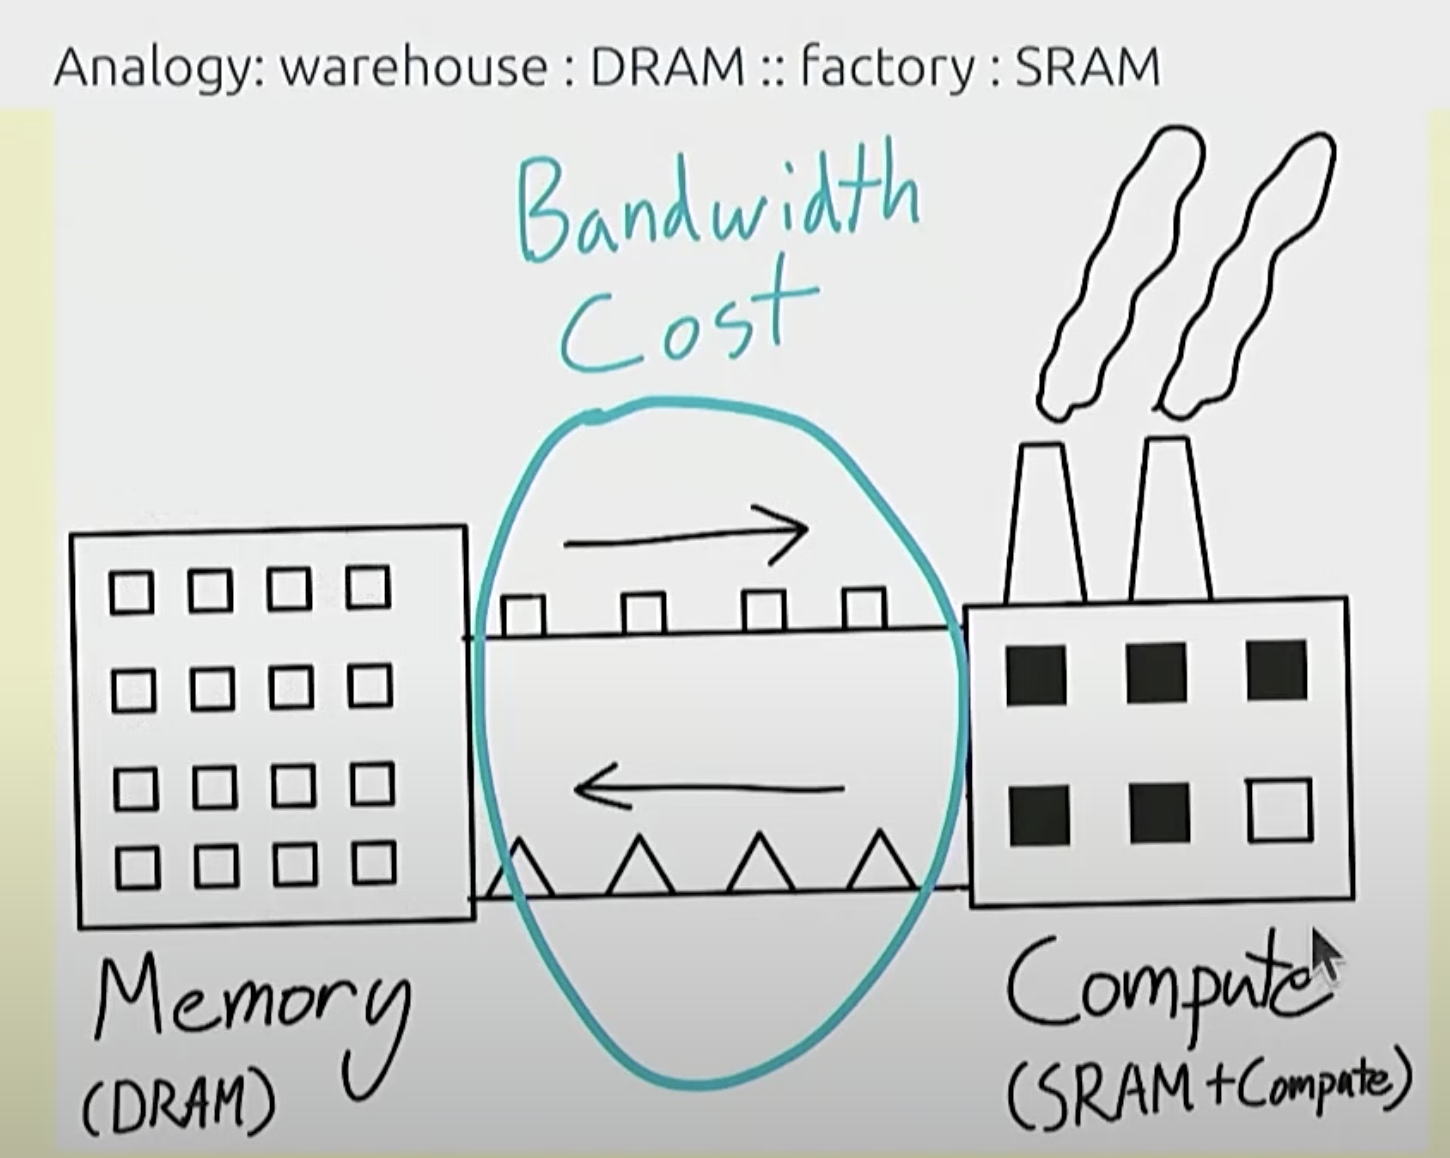 Analogy: warehouse : DRAM :: factory : SRAM
Bandwidth
Cost
Memory
(DRAM)
Compute
(SRAM + Compute)